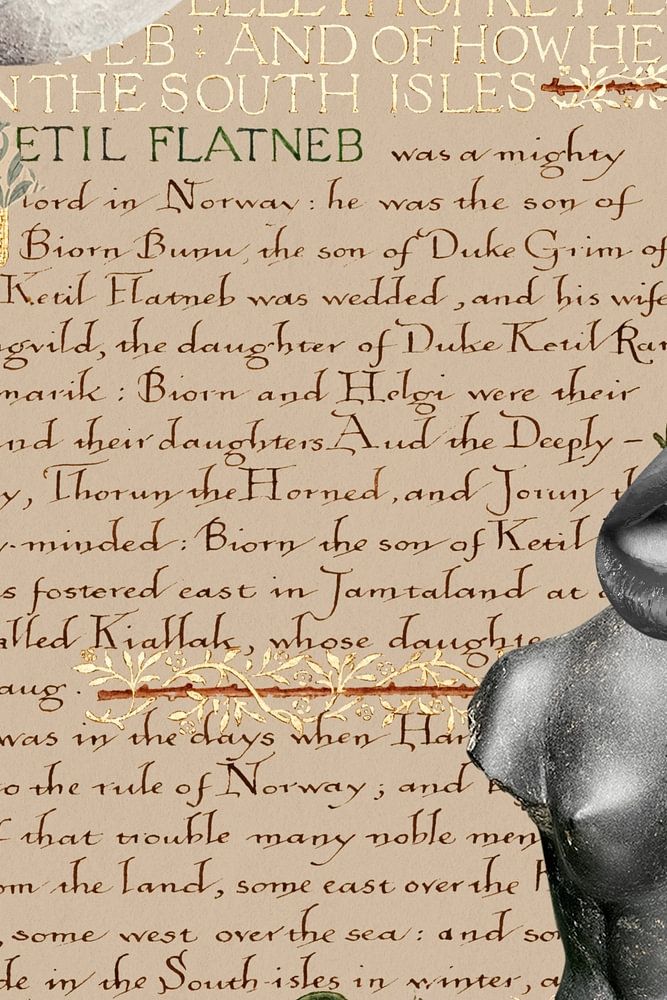 NEB : AND OF HOW HE
THE SOUTH ISLES
ETIL FLATNEB was a mighty
lord in Norway: he was the son of
Biorn Bunu, the son of Duke Grim of
Ketil Flatneb was wedded, and his wife
ngvild, the daughter of Duke Ketil
marik: Biorn and Helgi were their
and their daughters Aud the Deeply-
y, Thorun the Horned, and Jorun
y-minded: Biorn the son of Ketil
s fostered east in Jamtaland at
alled Kiallak, whose daughte
aug.
was in the days when Har
to the rule of Norway; and
f that trouble many noble men
om the land, some east over the
, some west over the sea: and so
de in the South-isles in winter, a